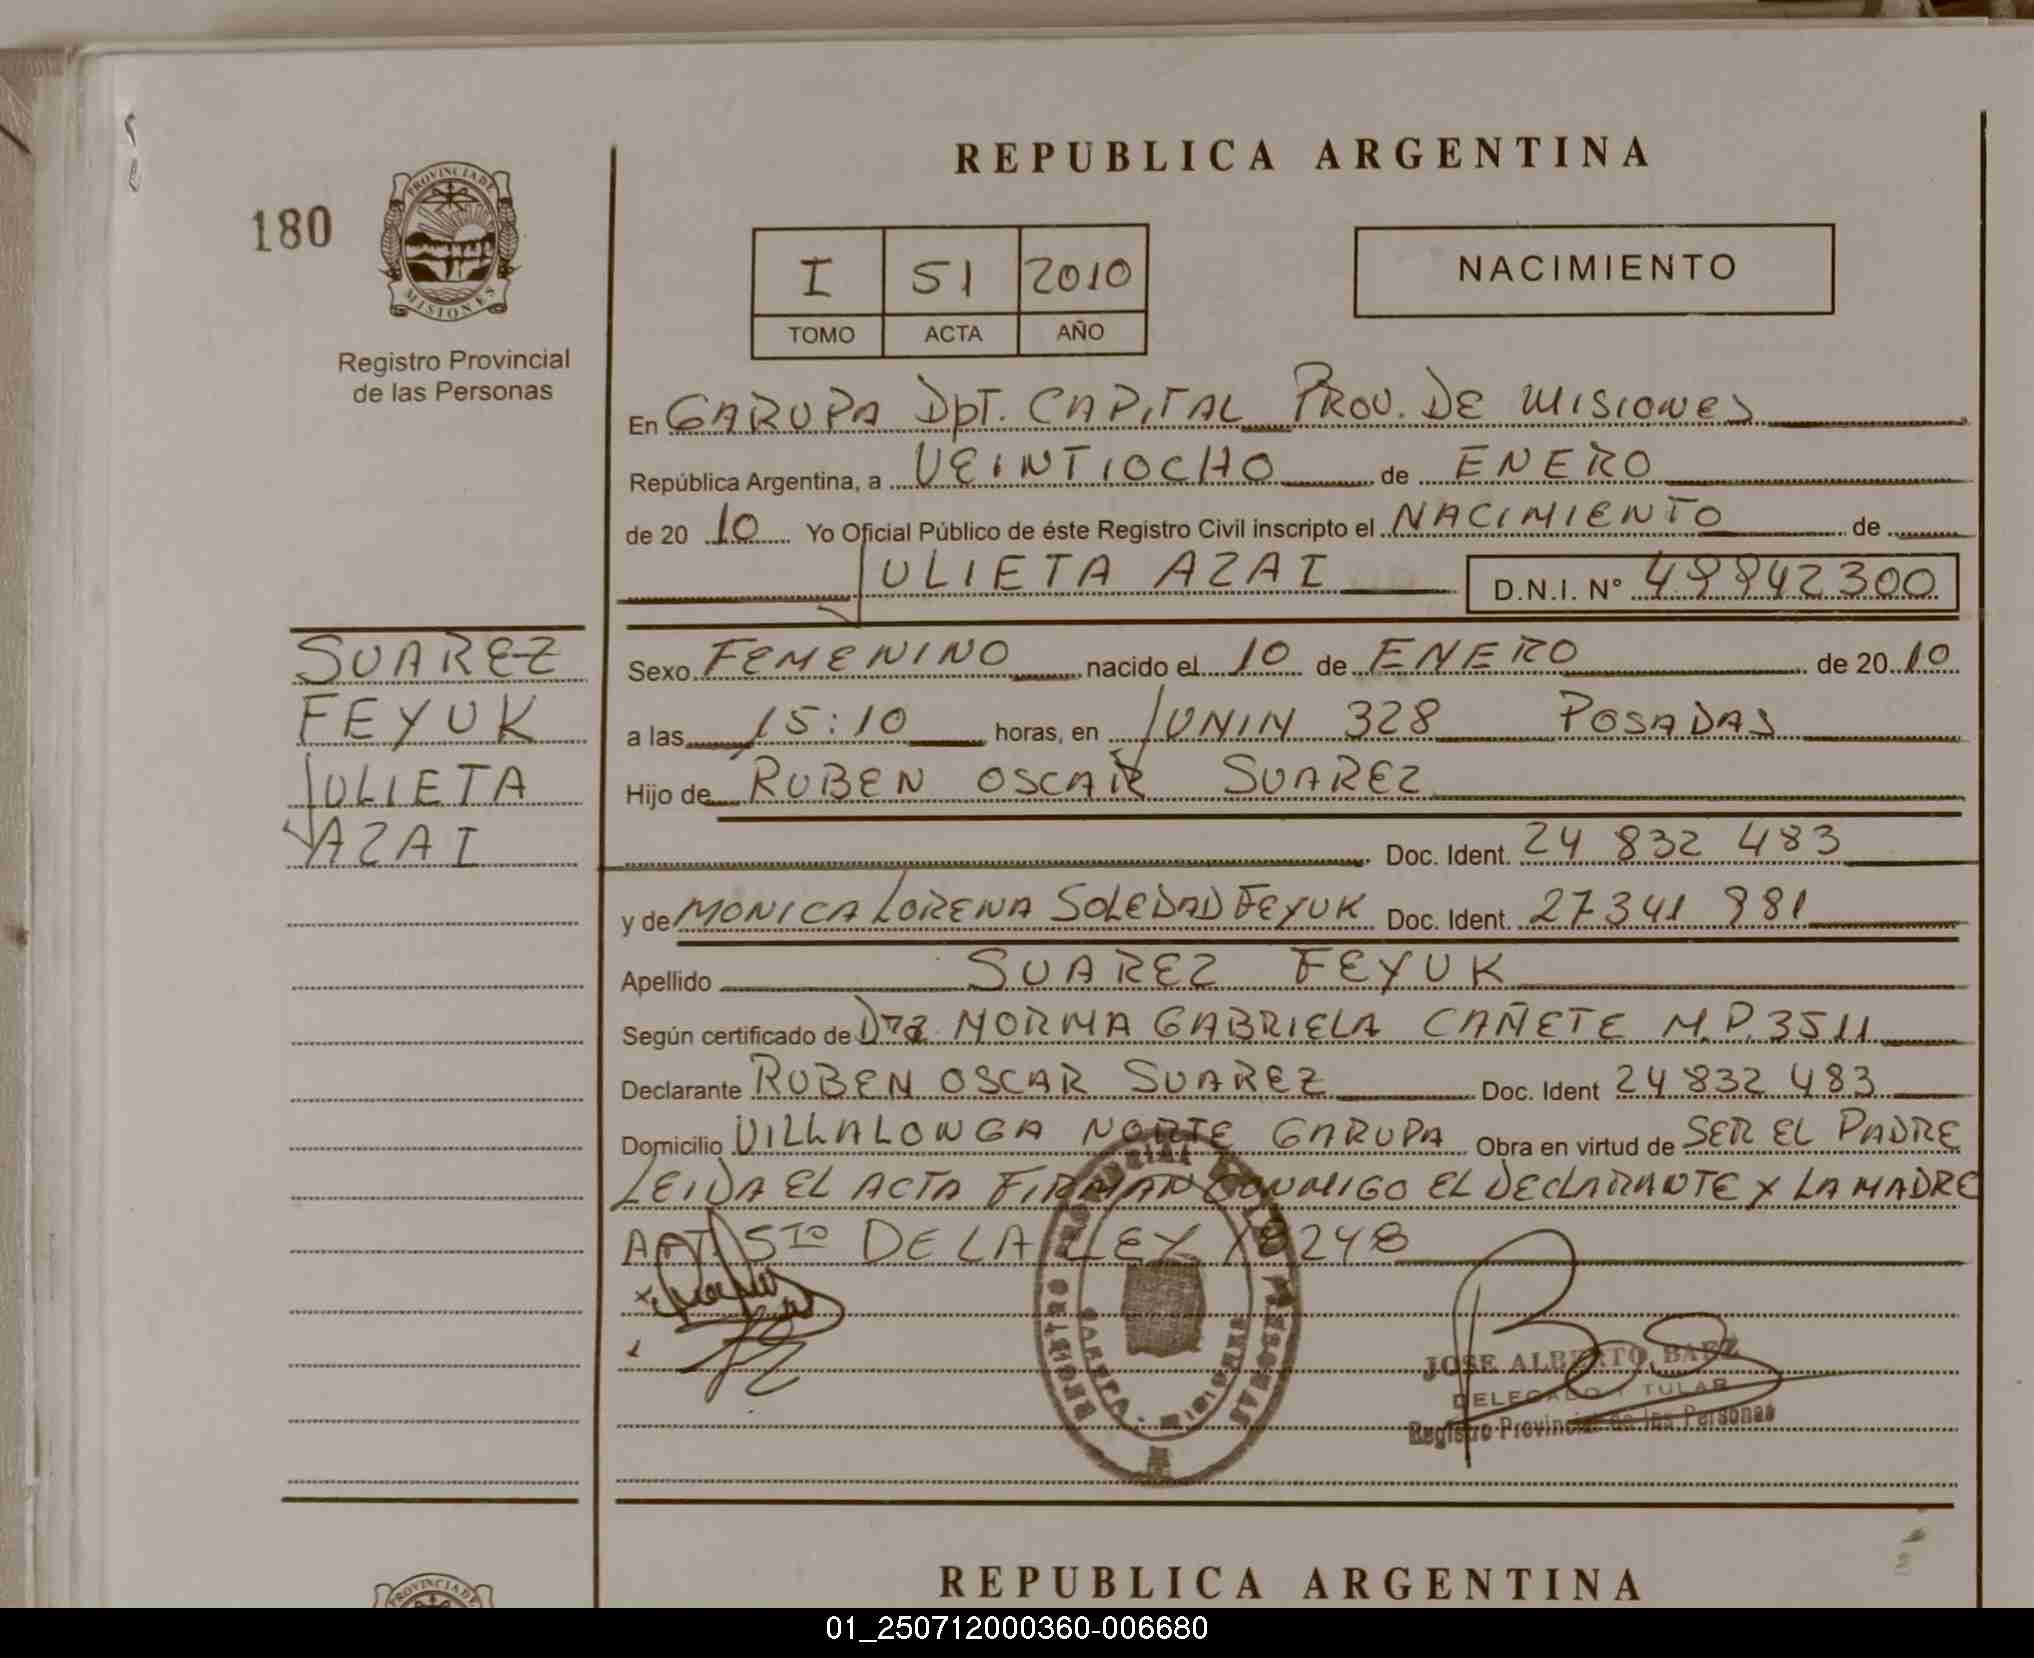 REPUBLICA ARGENTINA
180
PROVINCIA DE
MISIONES
Registro Provincial
de las Personas
I 51 2010
TOMO ACTA AÑO
NACIMIENTO
En GARUPA DpT. CAPITAL PROV. DE MISIONES
República Argentina, a VEINTIOCHO de ENERO
de 20 10 Yo Oficial Público de éste Registro Civil inscripto el NACIMIENTO de
JULIETA AZAI D.N.I. Nº 49942300
SUAREZ
FEYUK
JULIETA
AZAI
Sexo FEMENINO nacido el 10 de ENERO de 20 10
a las 15:10 horas, en JUNIN 328 POSADAS
Hijo de RUBEN OSCAR SUAREZ
Doc. Ident. 24 832 483
y de MONICA LORENA SOLEDAD FEYUK Doc. Ident. 27341 981
Apellido SUAREZ FEYUK
Según certificado de Dra NORMA GABRIELA CAÑETE M.P. 3511
Declarante RUBEN OSCAR SUAREZ Doc. Ident 24 832 483
Domicilio VILLALONGA NORTE GARUPA Obra en virtud de SER EL PADRE
LEIDA EL ACTA FIRMAN CONMIGO EL DECLARANTE Y LA MADRE
ART. 5TO DE LA LEY 18248
REGISTRO PROVINCIAL DE LAS PERSONAS
GARUPA - MISIONES
JOSE ALBERTO BAEZ
DELEGADO TITULAR
Registro Provincial de las Personas
PROVINCIA DE
REPUBLICA ARGENTINA
01_250712000360-006680